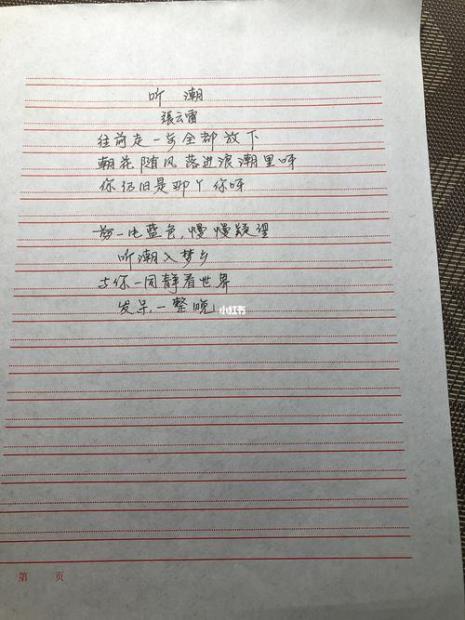 听 潮
張云雷
往前走一步全都放下
朝花随风落进浪潮里呀
你仍旧是那个你呀
一片蓝色,慢慢疑望
听潮入梦乡
与你一同静看世界
发呆,一整晚
小红书
第 页